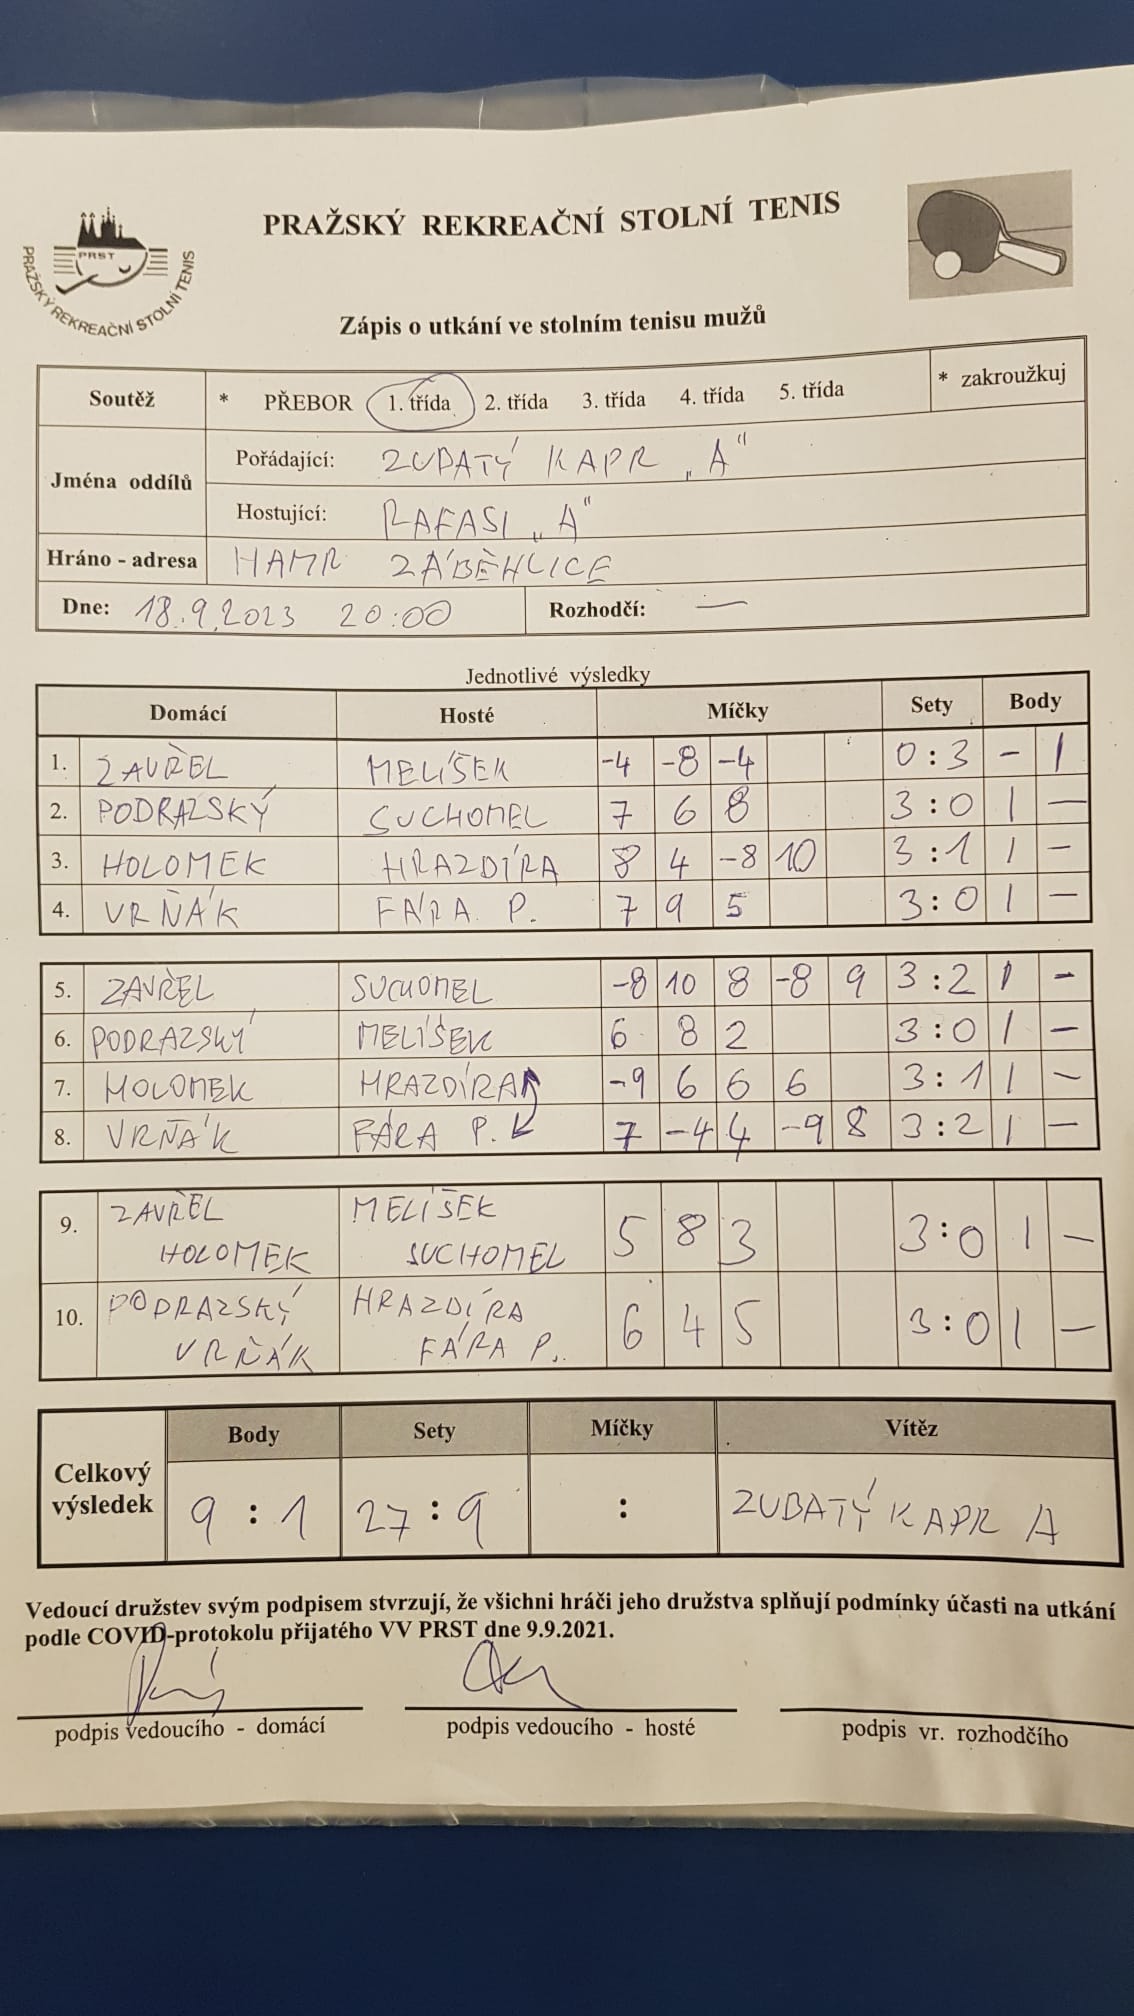 PRAŽSKÝ REKREAČNÍ STOLNÍ TENIS
PRST
PRAŽSKÝ REKREAČNÍ STOLNÍ TENIS
Zápis o utkání ve stolním tenisu mužů
Soutěž * PŘEBOR 1. třída 2. třída 3. třída 4. třída 5. třída * zakroužkuj
Jména oddílů
Pořádající: ZUBATÝ KAPR „A"
Hostující: RAFASI „A"
Hráno - adresa HAMR ZÁBĚHLICE
Dne: 18.9.2023 20:00 Rozhodčí: —
Jednotlivé výsledky
Domácí Hosté Míčky Sety Body
1. ZAVŘEL MELÍŠEK -4 -8 -4 0:3 - 1
2. PODRAZSKÝ SUCHOMEL 7 6 8 3:0 1 —
3. HOLOMEK HRAZDÍRA 8 4 -8 10 3:1 1 —
4. VRŇÁK FÁRA P. 7 9 5 3:0 1 —
5. ZAVŘEL SUCHOMEL -8 10 8 -8 9 3:2 1 —
6. PODRAZSKÝ MELÍŠEK 6 8 2 3:0 1 —
7. HOLOMEK HRAZDÍRA -9 6 6 6 3:1 1 —
8. VRŇÁK FÁRA P. 7 -4 4 -9 8 3:2 1 —
9. ZAVŘEL MELÍŠEK 5 8 3 3:0 1 —
HOLOMEK SUCHOMEL
10. PODRAZSKÝ HRAZDÍRA 6 4 5 3:0 1 —
VRŇÁK FÁRA P.
Body Sety Míčky Vítěz
Celkový výsledek 9:1 27:9 : ZUBATÝ KAPR A
Vedoucí družstev svým podpisem stvrzují, že všichni hráči jeho družstva splňují podmínky účasti na utkání
podle COVID-protokolu přijatého VV PRST dne 9.9.2021.
podpis vedoucího - domácí podpis vedoucího - hosté podpis vr. rozhodčího